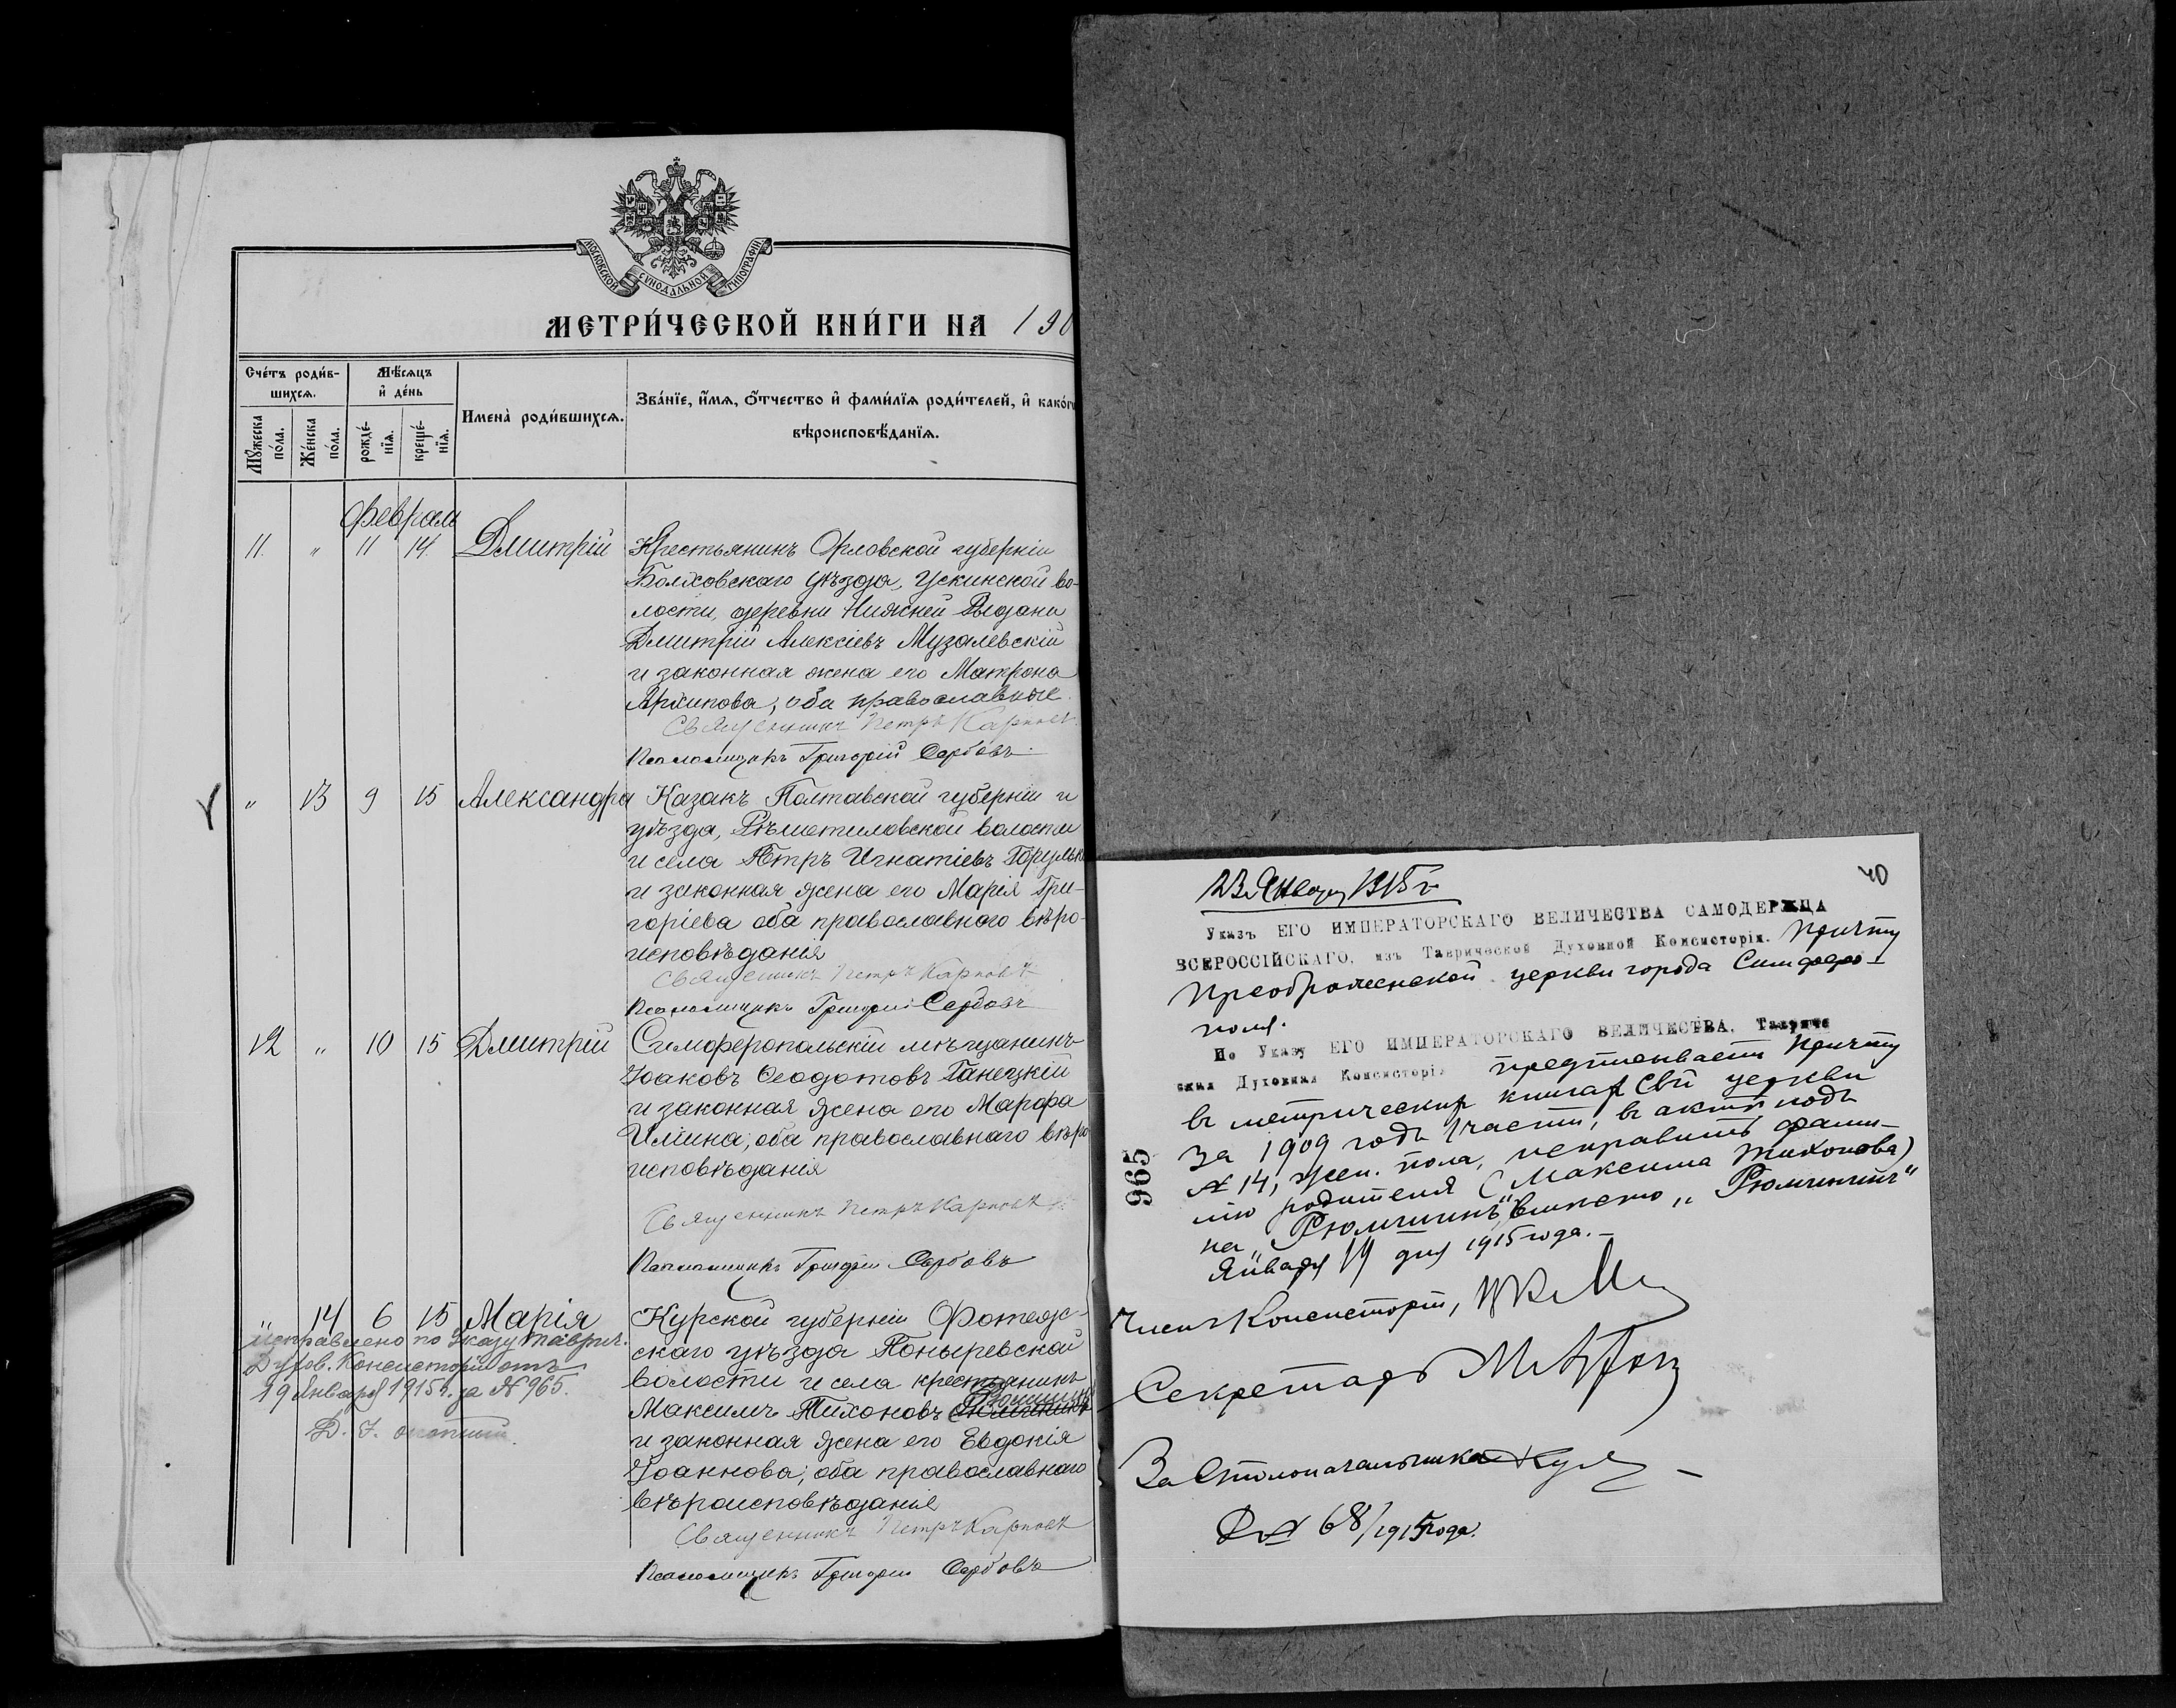 МОСКОВСКОЙ СѴНОДАЛЬНОЙ ТИПОГРАФІИ
МЕТРИ́ЧЕСКОЙ КНИ́ГИ НА 190
Сче́тъ роди́в-
шихсѧ.
Мѣ́сѧцъ
и҆ де́нь
Мꙋ́жеска
по́ла.
Же́нска
по́ла.
рожде́-
нїѧ.
креще́-
нїѧ.
Имена̀ роди́вшихсѧ.
Зва́нїе, и҆́мѧ, ѻ҆́тчество и҆ фами́лїѧ роди́телей, и҆ како́гѡ
вѣроисповѣ́данїѧ.
Февраль
11. " 11 14. Дмитрій Крестьянинъ Орловской губерніи
Болховскаго уѣзда, Ускинской во-
лости, деревни Нижней
Дмитрій Алексіевъ Музалевскій
и законная жена его Матрона
Архипова, оба православные.
Священникъ Петръ Карповъ
Псаломщикъ Григорій Сербовъ
" 13 9 15 Александра Казакъ Полтавской губерніи и
уѣзда, Рѣшетиловской волости
и села Петръ Игнатіевъ
и законная жена его Марія Гри-
горіева оба православнаго вѣро-
исповѣданія
Священникъ Петръ Карповъ
Псаломщикъ Григорій Сербовъ
12 " 10 15 Дмитрій Симферопольскій мѣщанинъ
Іоаковъ Ѳеодотовъ Ганецкій
и законная жена его Марфа
Илліина, оба православнаго вѣро
исповѣданія
Священникъ Петръ Карповъ
Псаломщикъ Григорій Сербовъ
" 14 6 15 Марія Курской губерніи Фотеж-
скаго уѣзда Поныревской
волости и села крестьянинъ
Максимъ Тихоновъ
и законная жена его Евдокія
Іоаннова, оба православнаго
вѣроисповѣданія
Священникъ Петръ Карповъ
Псаломщикъ Григорій Сербовъ
Исправлено по Указу Таврич.
Духов. Консисторіи отъ
19 Января 1915 г. за № 965.
40
23 Января 1915 г.
Указъ ЕГО ИМПЕРАТОРСКАГО ВЕЛИЧЕСТВА САМОДЕРЖЦА
ВСЕРОССІЙСКАГО, изъ Таврической Духовной Консисторіи. Причту
Преображенской церкви города Симферо-
поля.
По Указу ЕГО ИМПЕРАТОРСКАГО ВЕЛИЧЕСТВА, Тавриче
ская Духовная Консисторія предписываетъ Причту
въ метрическихъ книгахъ сей церкви
за 1909 годъ I части, въ актѣ подъ
№ 14, жен. пола, исправить фами-
лію родителя (Максима Тихонова)
на "Рюмшинъ" вмѣсто "Рюмчинъ"
Января 19 дня 1915 года.
965
Членъ Консисторіи,
Секретарь
За Столоначальника
№ 68/1915 года.